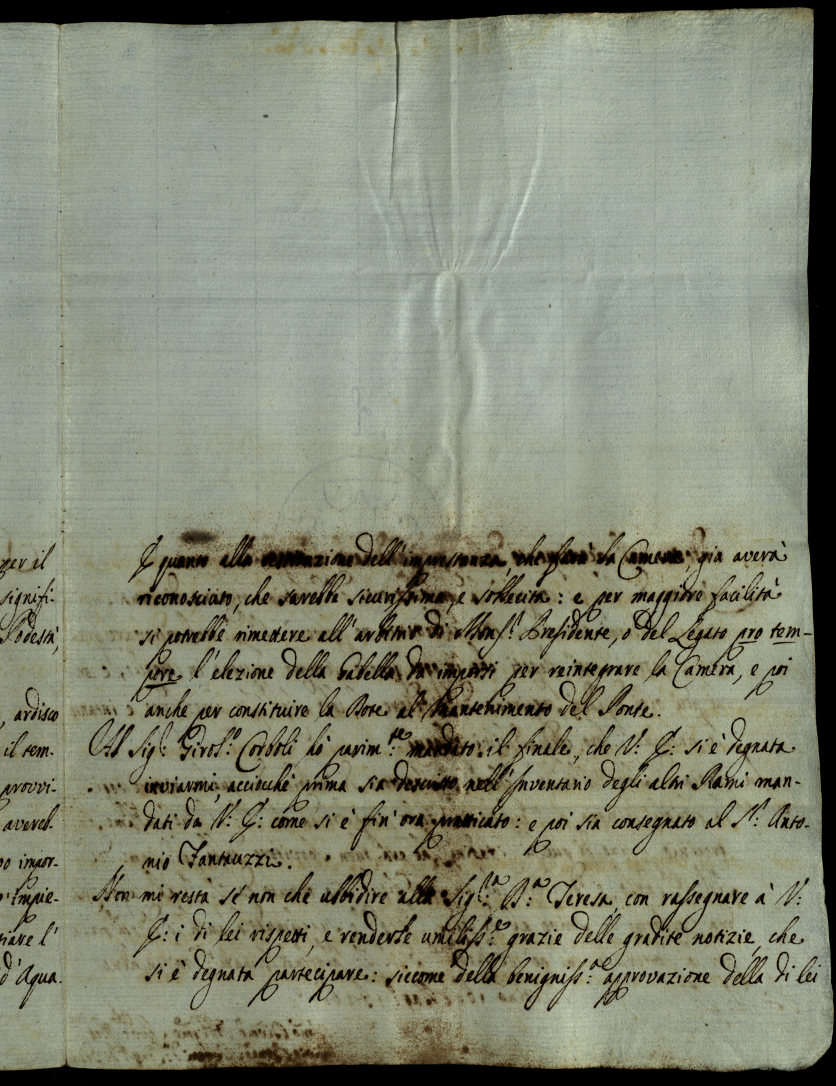 per il
signifi-
Podestà,
, ardisco
il tem-
provvi-
avereb-
impor-
Impie-
tiare l'
d'Aqua.
P quanto alla restituzione dell'imprestanza, che farà la Camera, già averà
riconosciuto, che sarebbe sicurissima, e sollecita: e per maggiore facilità
si potrebbe rimettere all'arbitrio di Mons.r Presidente, o del Legato pro tem-
pore l'elezione della Gabella da imporsi per reintegrare la Camera, e poi
anche per constituire la Dote al mantenimento del Ponte.
Al Sig.r Girol.o Corboli hò parim.te mandato il finale, che V: E: si è degnata
inviarmi, acciochè prima sia descritto nell'Inventario degli altri Rami man-
dati da V: E: come si è fin'ora pratticato: e poi sia consegnato al S.r Anto-
nio Fantauzzi.
Non mi resta se non che ubbidire alla Sig.ra D.a Teresa con rassegnare à V:
E: i di lei rispetti, e renderle umiliss.e grazie delle gradite notizie, che
si è degnata partecipare: siccome della benigniss.a approvazione della di lei